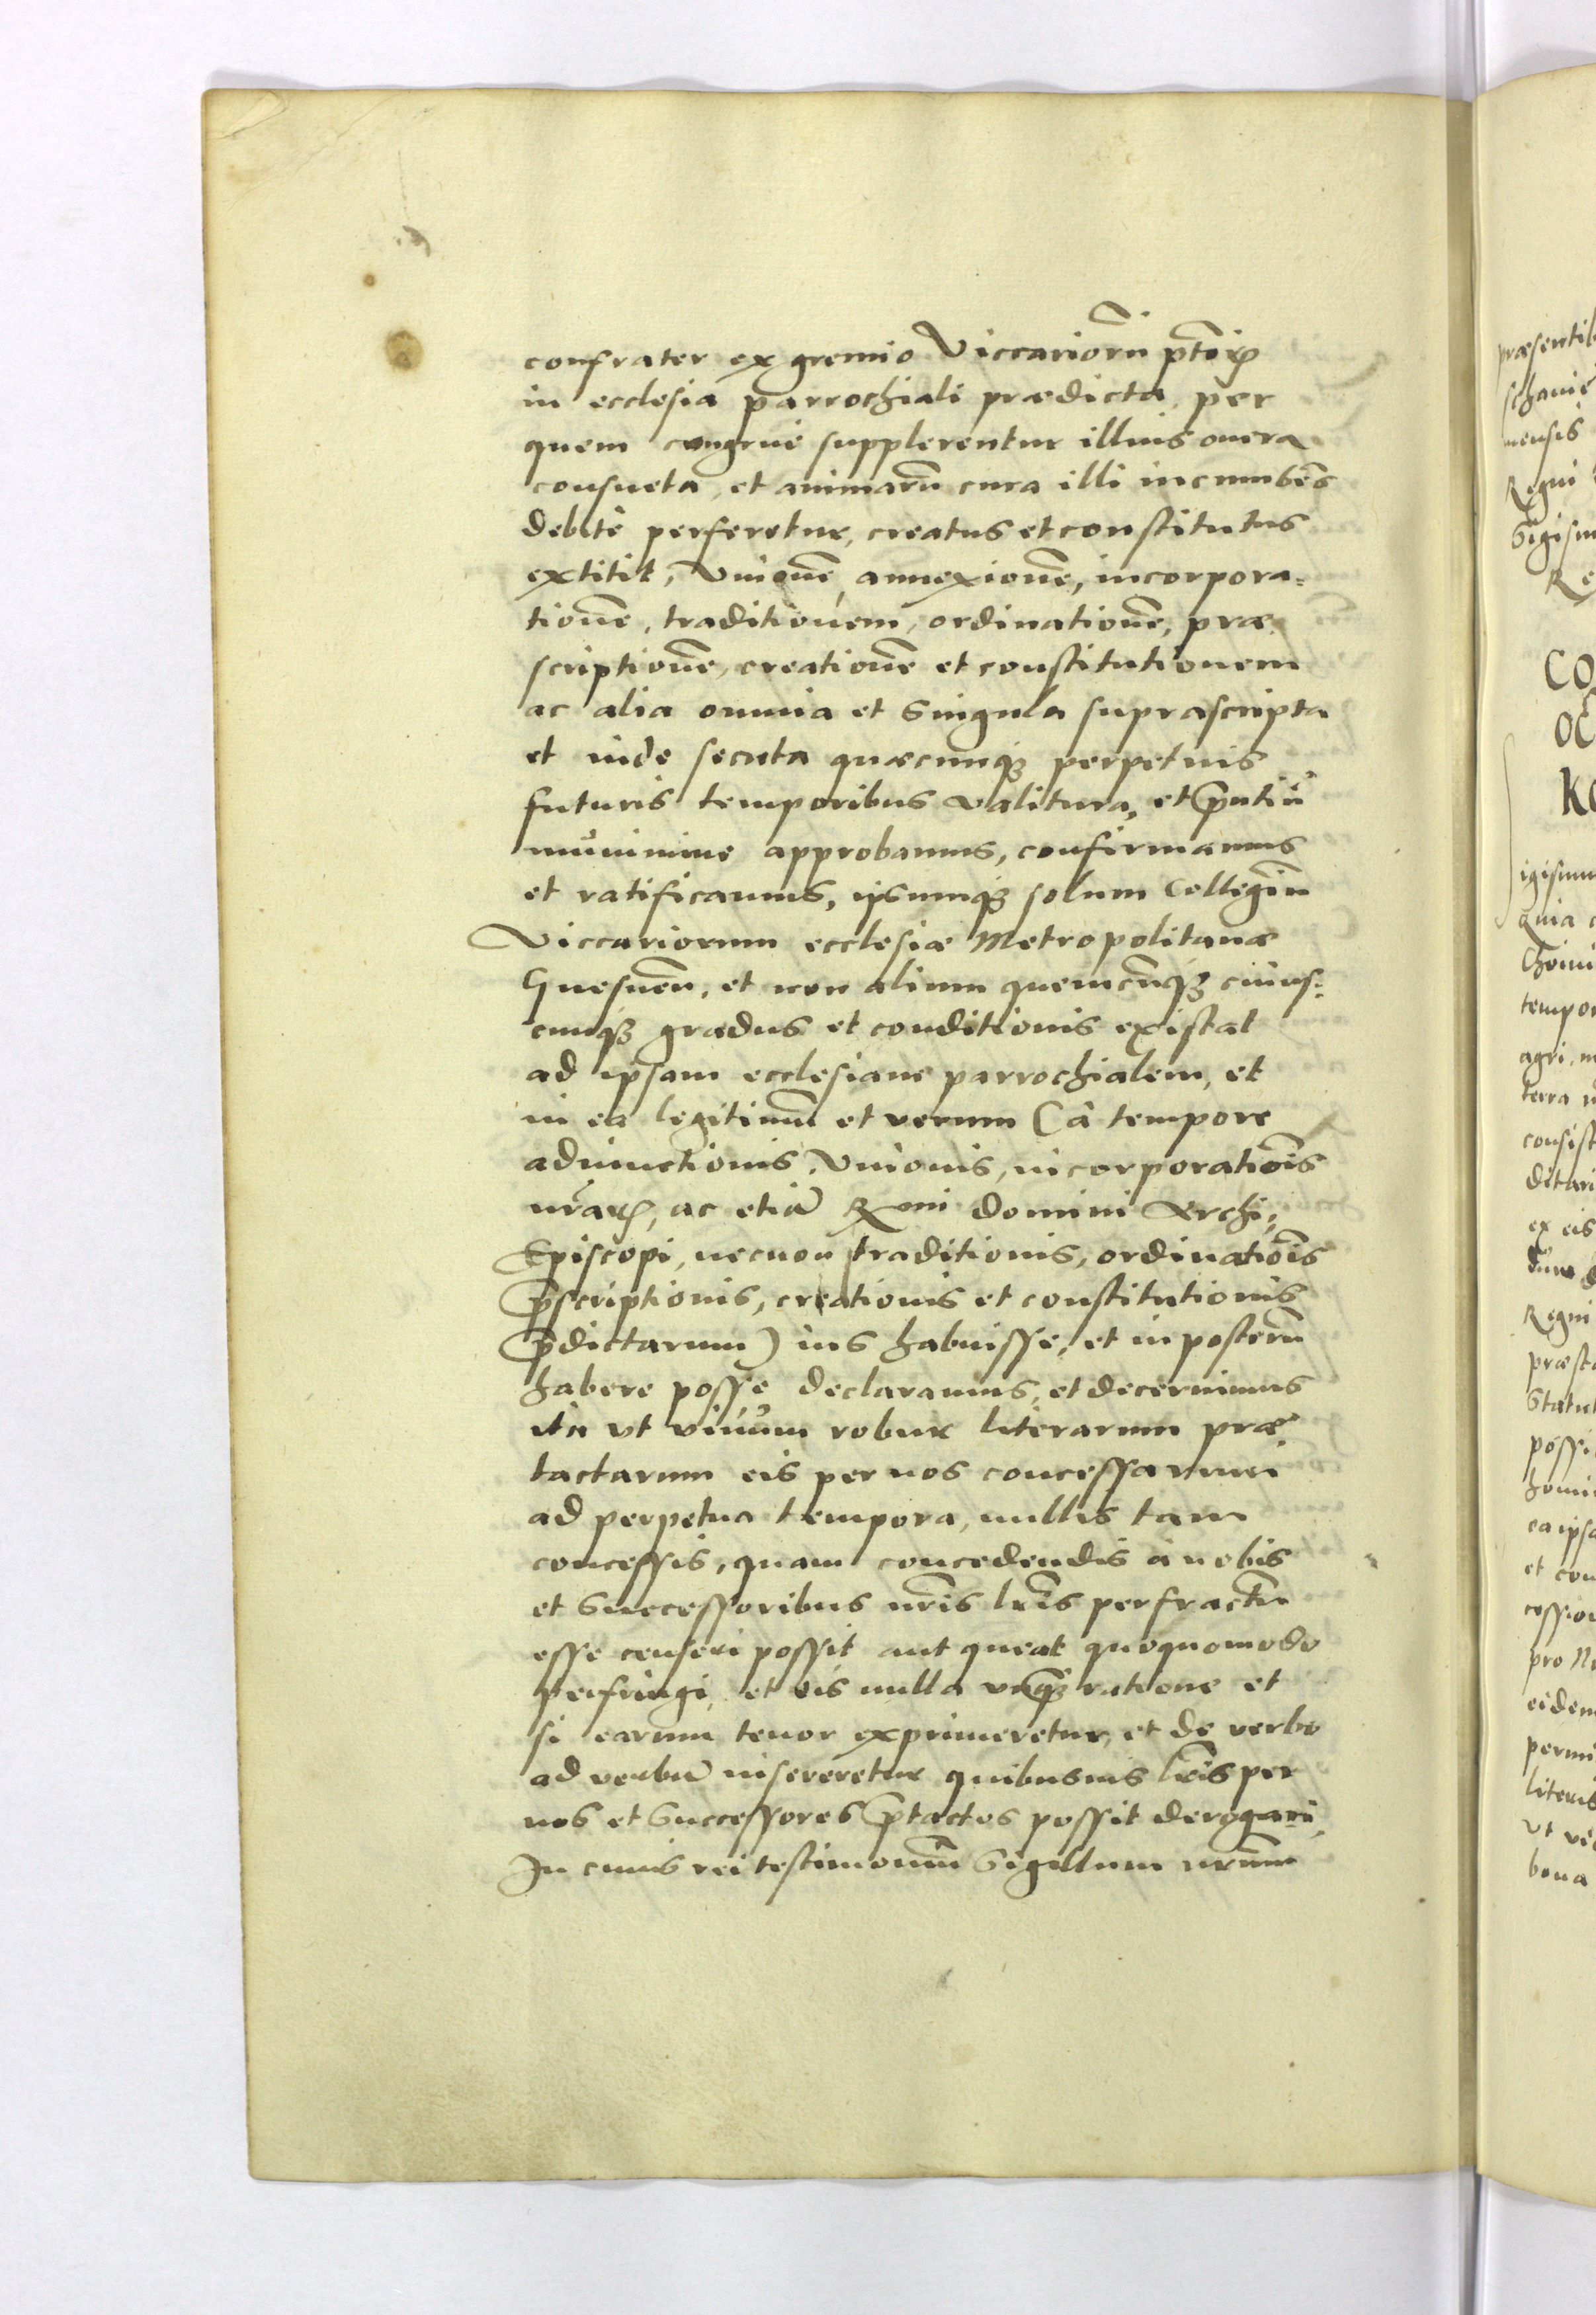 confrater ex gremio Viccariorũ ptorꝝ
in ecclesia parrochiali prædicta, per
quem congruè supplerentur illius onera
consueta, et animarũ cura illi incumbẽs
debitè perferetur, creatus et constitutus
extitit, Vnionẽ, annexionẽ, incorpora-
tionẽ, traditionem, ordinationẽ, præ
scriptionẽ, creationẽ et constitutionem
ac alia omnia et Singula suprascripta
et inde secuta quæcunqꝫ perpetuis
futuris temporibus valitura, et p̃ntiũ
munimine approbamus, confirmamus
et ratificamus, ipsumqꝫ solum Collegiũ
Viccariorum ecclesiæ Metropolitanæ
Gnesneñ, et non alium quemcũqꝫ cuius-
cunqꝫ gradus et conditionis existat
ad ipsam ecclesiam parrochialem, et
in ea legitimũ et verum (à tempore
adiunctionis, Vnionis, incorporatiõis
nr̃arꝝ, ac etiã Rmi domini Archi-
Episcopi, necnon traditionis, ordinatiõis
p̃scriptionis, creationis et constitutionis
p̃dictarum) ius habuisse, et in posterũ
habere posse declaramus, et decernimus
ita vt viuum robur literarum præ
tactarum eis per nos concessarum
ad perpetua tempora, nullis tam
concessis, quam concedendis à nobis
et Successoribus nr̃is lr̃is perfractũ
esse censeri possit aut queat quoquomodo
perfringi, et eis nulla vnqꝫ ratione et
si earum tenor exprimeretur, et de verbo
ad verbũ insereretur quibusuis lr̃is per
nos et Successores p̃tactos possit derogari,
In cuius rei testimoniũ Sigillum nr̃um
præsentib
schanie
nensis
Regni
Sigism
Re
CO
OC
KO
igismu
quia
tempor
agri, m
terra
consist
ditari
ex eis
Regni
præst
Statut
possi
homi
ea ipsa
et con
cessio
pro N
eidem
permi
literis
vt
bona